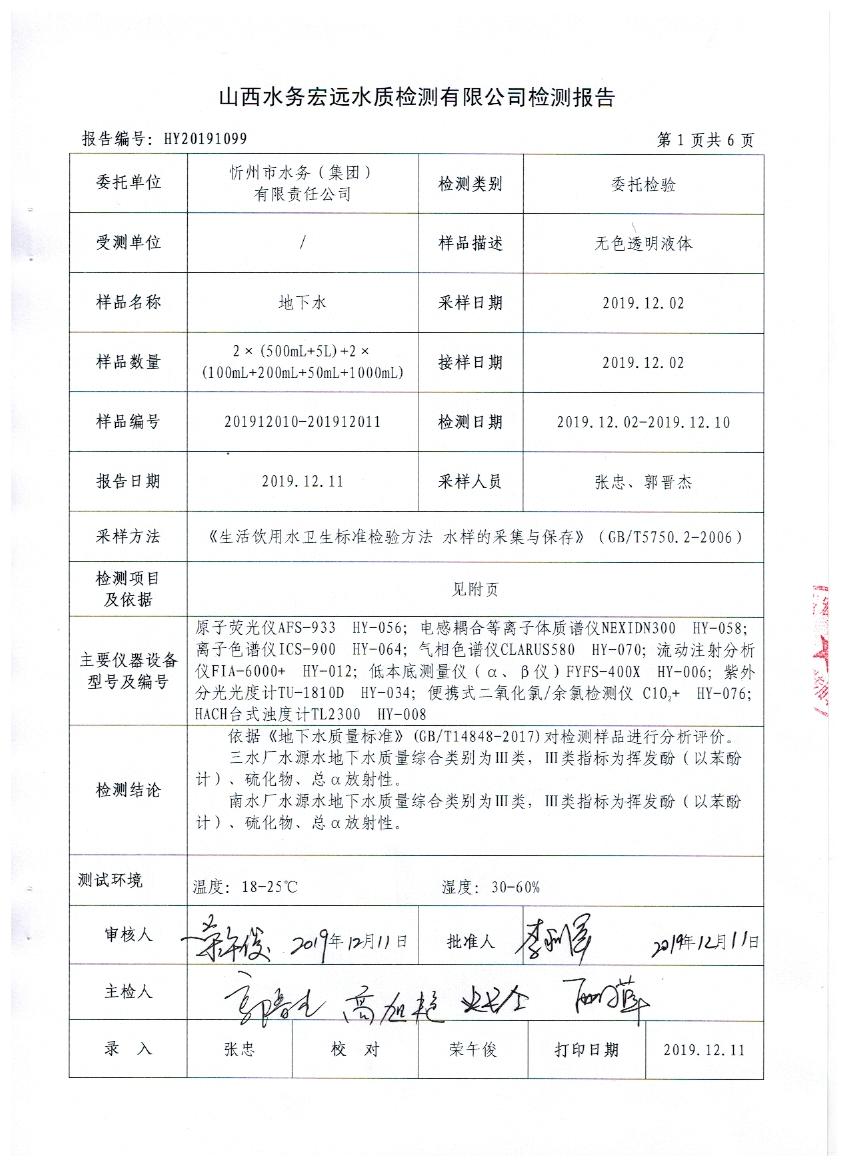 山西水务宏远水质检测有限公司检测报告
报告编号：HY20191099 第 1 页共 6 页
委托单位 忻州市水务（集团）有限责任公司 检测类别 委托检验
受测单位 / 样品描述 无色透明液体
样品名称 地下水 采样日期 2019.12.02
样品数量 2×(500mL+5L)+2×(100mL+200mL+50mL+1000mL) 接样日期 2019.12.02
样品编号 201912010-201912011 检测日期 2019.12.02-2019.12.10
报告日期 2019.12.11 采样人员 张忠、郭晋杰
采样方法 《生活饮用水卫生标准检验方法 水样的采集与保存》（GB/T5750.2-2006）
检测项目及依据 见附页
主要仪器设备型号及编号
原子荧光仪AFS-933 HY-056；电感耦合等离子体质谱仪NEXIDN300 HY-058；
离子色谱仪ICS-900 HY-064；气相色谱仪CLARUS580 HY-070；流动注射分析
仪FIA-6000+ HY-012；低本底测量仪（α、β仪）FYFS-400X HY-006；紫外
分光光度计TU-1810D HY-034；便携式二氧化氯/余氯检测仪 ClO₂+ HY-076；
HACH台式浊度计TL2300 HY-008
检测结论
依据《地下水质量标准》(GB/T14848-2017)对检测样品进行分析评价。
三水厂水源水地下水质量综合类别为Ⅲ类，Ⅲ类指标为挥发酚（以苯酚
计）、硫化物、总α放射性。
南水厂水源水地下水质量综合类别为Ⅲ类，Ⅲ类指标为挥发酚（以苯酚
计）、硫化物、总α放射性。
测试环境 温度：18-25℃ 湿度：30-60%
审核人 荣午俊 2019年12月11日 批准人 2019年12月11日
主检人 郭晋杰 高旭艳
录 入 张忠 校 对 荣午俊 打印日期 2019.12.11